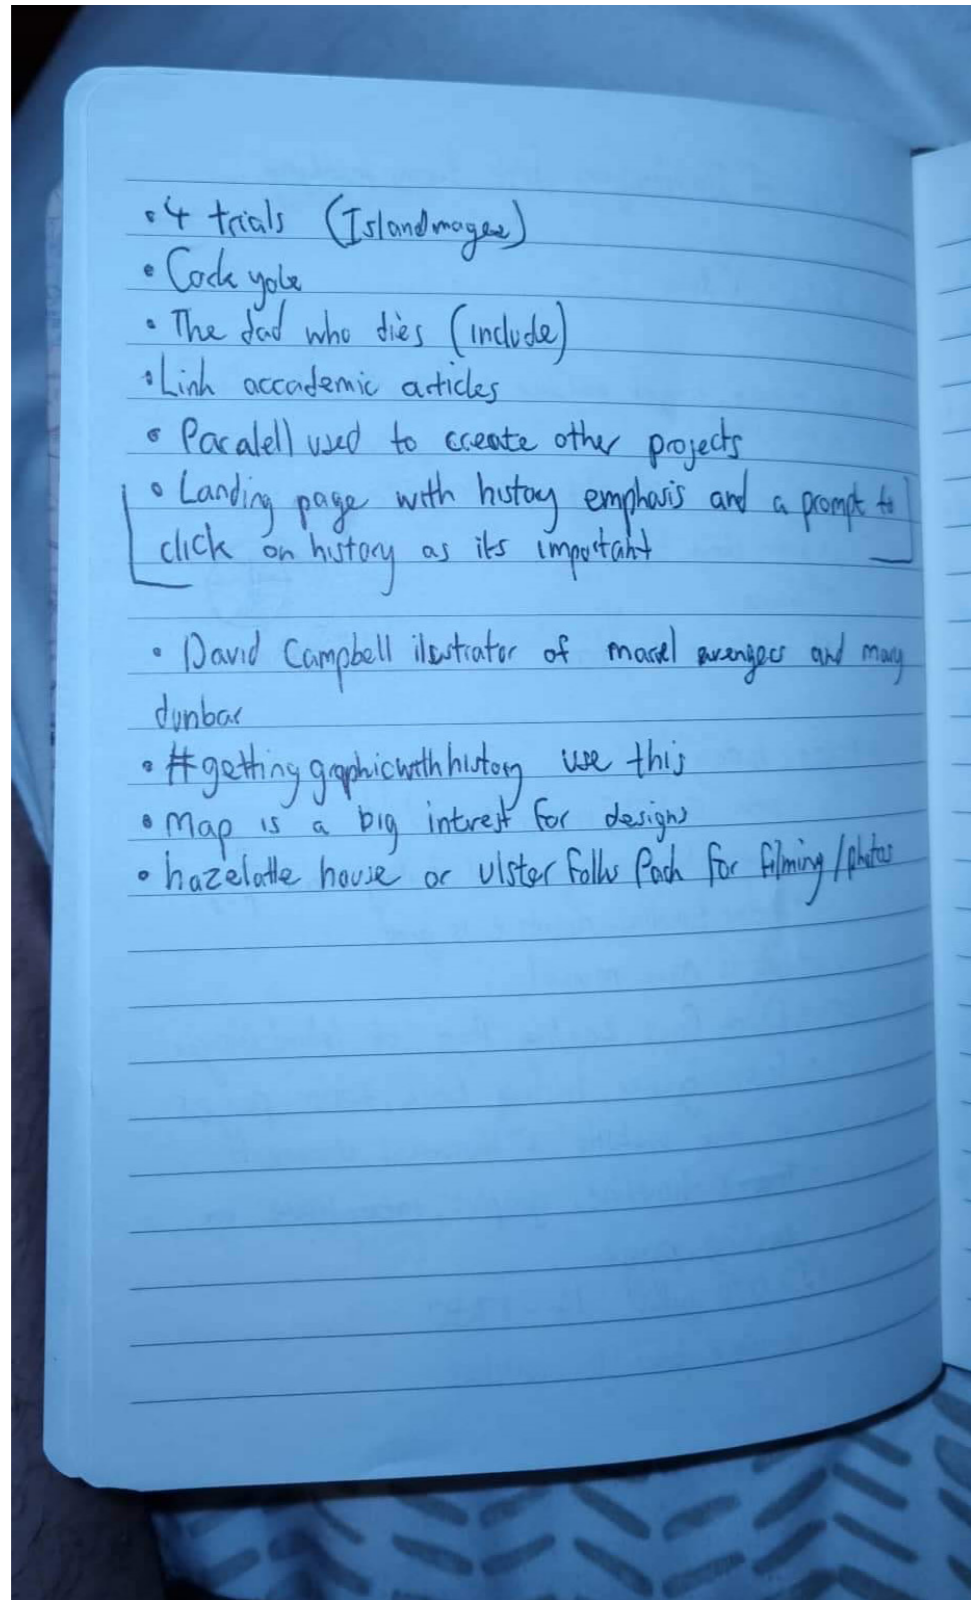 • 4 trials (Islandmagee)
• Cock yole
• The dad who dies (include)
• Link accademic articles
• Paralell used to create other projects
• Landing page with history emphasis and a prompt to
click on history as its important
• David Campbell ilustrator of marvel avengers and mary
dunbar
• #gettinggraphicwithhistory use this
• Map is a big intrest for designs
• hazelatte house or ulster folks Park for filming/photos